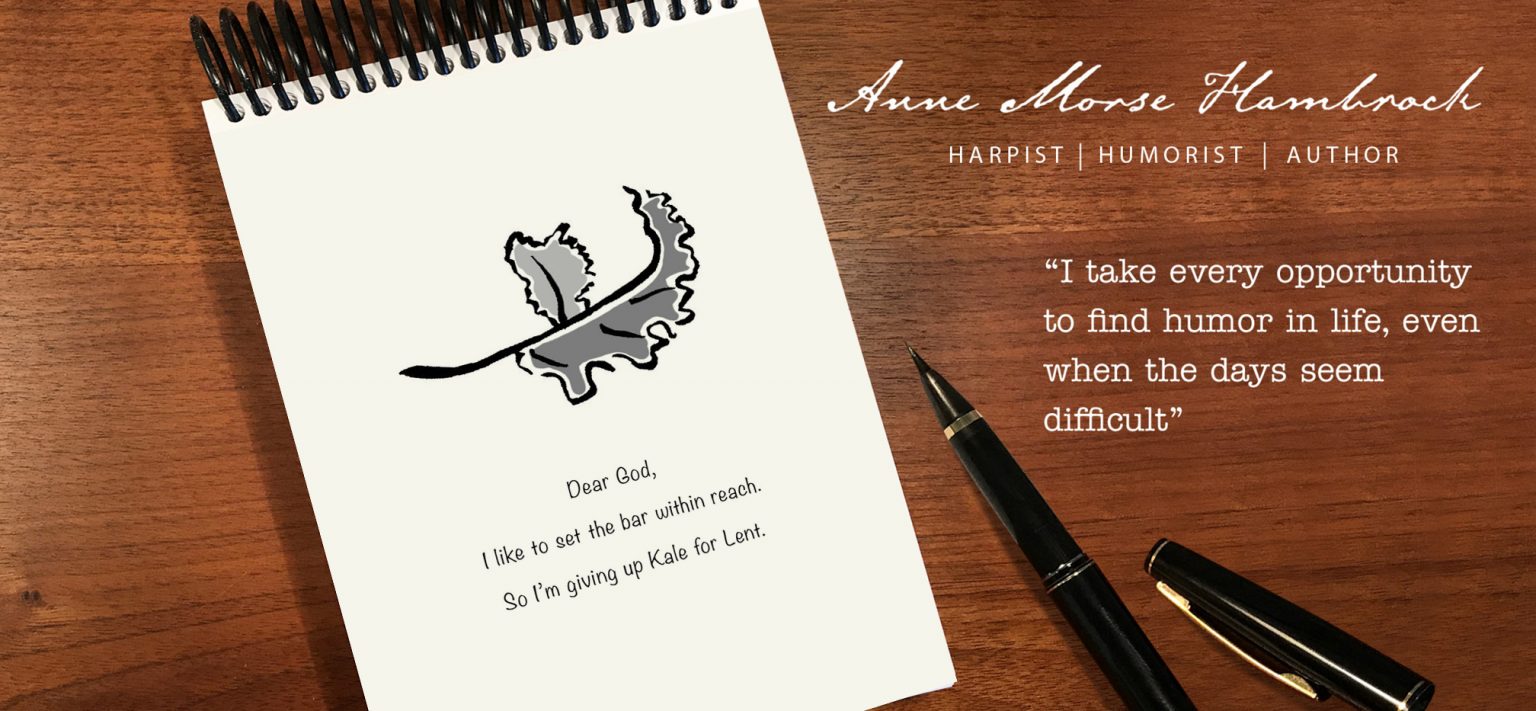 Anne Morse Hambrock
HARPIST | HUMORIST | AUTHOR
“I take every opportunity
to find humor in life, even
when the days seem
difficult”
Dear God,
I like to set the bar within reach.
So I’m giving up Kale for Lent.